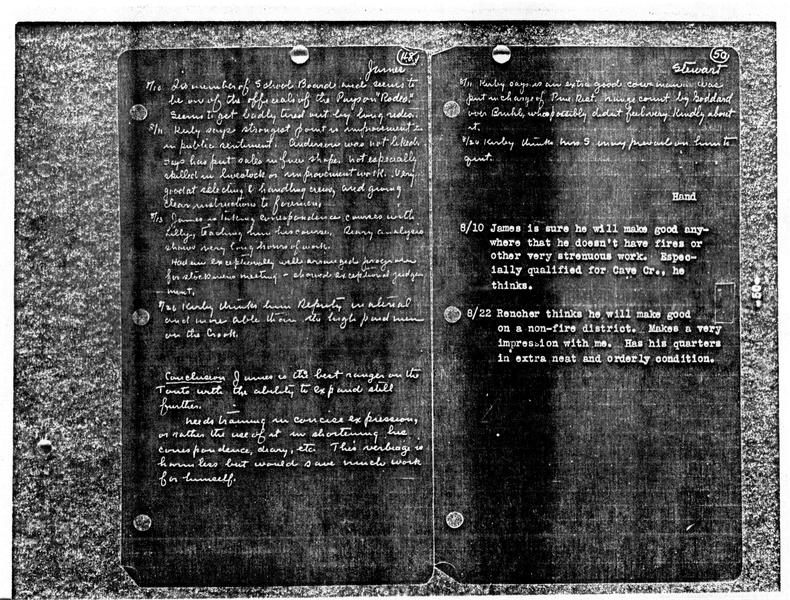 48
James
8/10 Is member of School Board and seems to
be one of the officials of the Payson "Rodeo."
Seems to get badly tired out by long rides.
8/11 Kirby says strongest point is improvement
in public sentiment. Anderson was not liked.
Says has put sales in fine shape. Not especially
skilled in livestock or improvement work. Very
good at selecting & handling crews, and giving
clear instructions to foremen.
8/13 James is taking correspondence courses with
Lilly, teaching him his course. Diary analyses
shows very long hours of work.
Had an exceptionally well arranged program
for stockmen's meeting - showed exceptional judge-
ment.
8/26 Kirby thinks him Deputy material
and more able than the high paid men
on the Crook.
Conclusion James is the best ranger on the
Tonto with the ability to expand still
further.
Needs training in concise expression,
or rather the use of it in shortening his
correspondence, diary, etc. This verbiage is
harmless but would save much work
for himself.
50
Stewart
8/11 Kirby says is an extra good cow man. Was
put in charge of Pine Dist. range count by Goddard
over Bruhl, who possibly didn't feel very kindly about
it.
8/26 Kirby thinks Mrs S may prevail on him to
quit.
Hand
8/10 James is sure he will make good any-
where that he doesn't have fires or
other very strenuous work. Espec-
ially qualified for Cave Cr., he
thinks.
8/22 Rencher thinks he will make good
on a non-fire district. Makes a very
impression with me. Has his quarters
in extra neat and orderly condition.
-50-